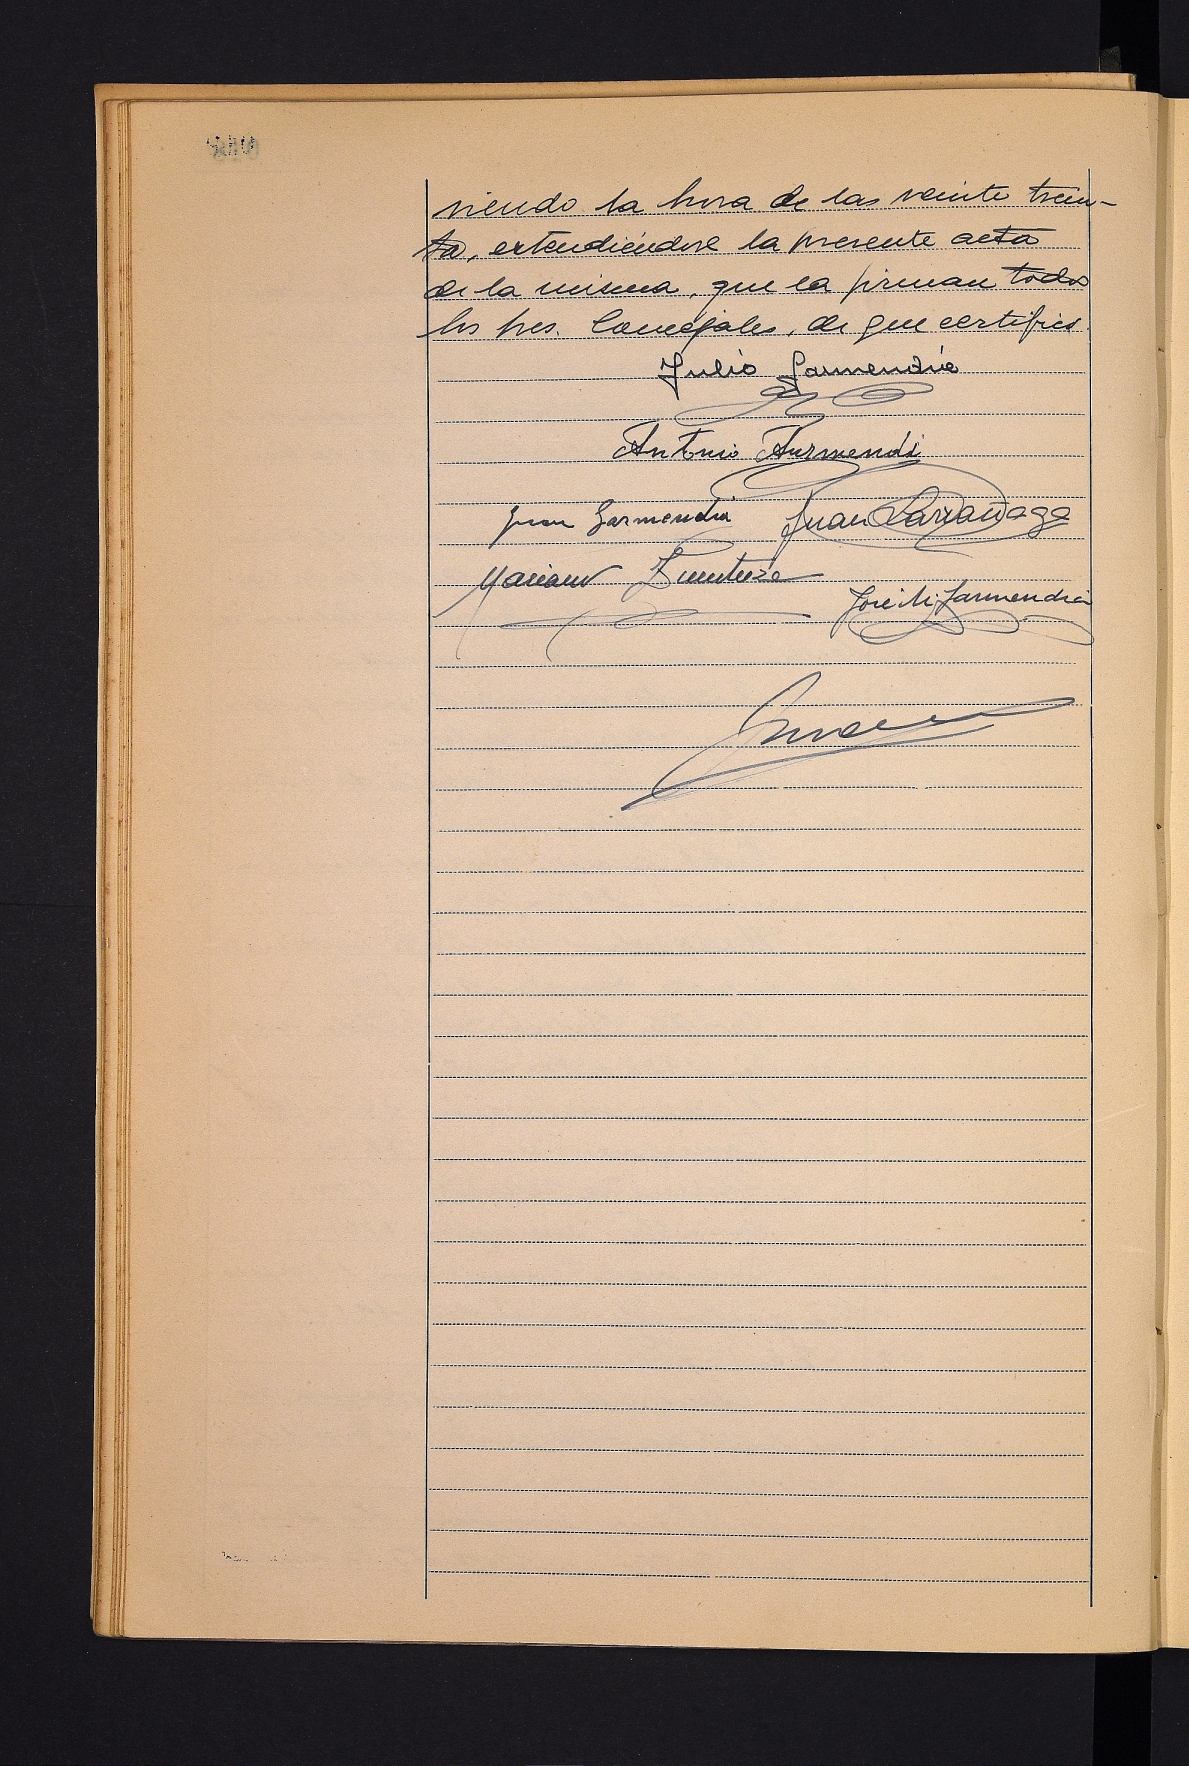 siendo la hora de las veinte trein-
ta, extendiéndose la presente acta
de la misma, que la firman todos
los Sres. Concejales, de que certifico.
Julio Garmendia
Antonio Aurmendi
Juan Garmendia Juan Larrañaga
Mariano
José M. Garmendia